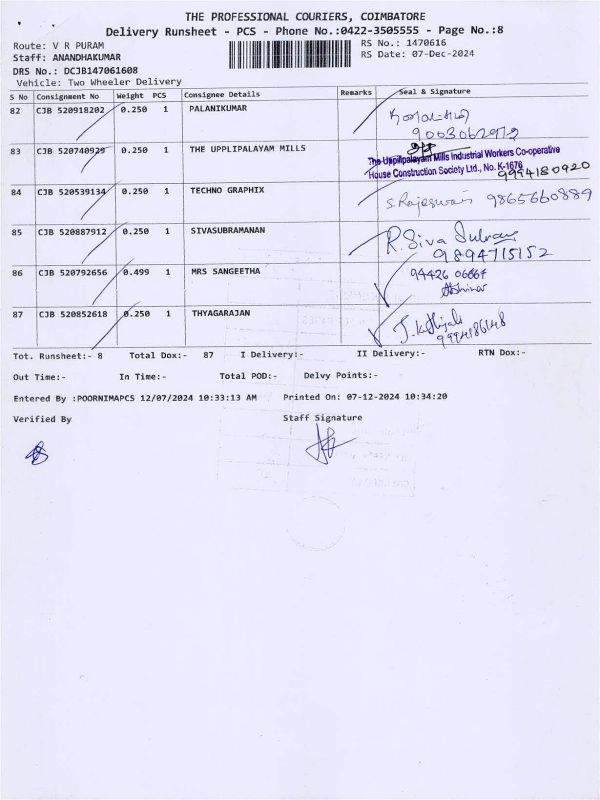 THE PROFESSIONAL COURIERS, COIMBATORE
Delivery Runsheet - PCS - Phone No.:0422-3505555 - Page No.:8
Route: V R PURAM
RS No.: 1470616
Staff: ANANDHAKUMAR
RS Date: 07-Dec-2024
DRS No.: DCJB147061608
Vehicle: Two Wheeler Delivery
S No Consignment No Weight PCS Consignee Details Remarks Seal & Signature
82 CJB 520918202 0.250 1 PALANIKUMAR
9003062972
83 CJB 520740929 0.250 1 THE UPPLIPALAYAM MILLS
The Uppilipalayam Mills Industrial Workers Co-operative
House Construction Society Ltd., No. K-1676
9994180920
84 CJB 520539134 0.250 1 TECHNO GRAPHIX S. Rajeswari 9865660889
85 CJB 520887912 0.250 1 SIVASUBRAMANAN R. Siva
9894715152
86 CJB 520792656 0.499 1 MRS SANGEETHA 94426 06667
87 CJB 520852618 0.250 1 THYAGARAJAN
9994186148
Tot. Runsheet:- 8 Total Dox:- 87 I Delivery:- II Delivery:- RTN Dox:-
Out Time:- In Time:- Total POD:- Delvy Points:-
Entered By :POORNIMAPCS 12/07/2024 10:33:13 AM Printed On: 07-12-2024 10:34:20
Verified By Staff Signature